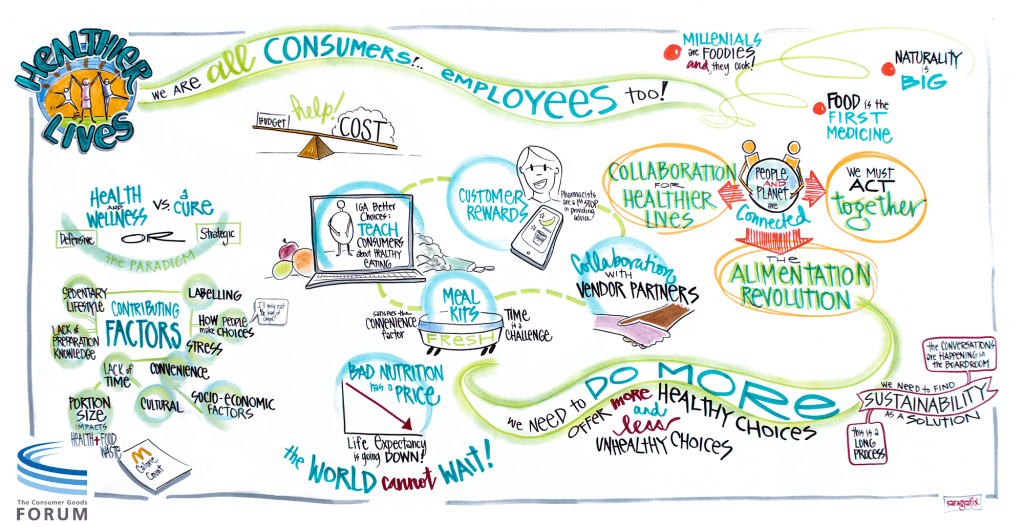 HEALTHIER
LIVES
WE ARE all CONSUMERS!.. EMPLOYEES TOO!
MILLENIALS
are FOODIES
and they cook!
NATURALITY
is
BIG
FOOD is the
FIRST
MEDICINE
help!
BUDGET
COST
HEALTH
AND
WELLNESS
VS.
a
CURE
Defensive
OR
Strategic
the PARADIGM
CONTRIBUTING
FACTORS
SEDENTARY
LIFESTYLE
LACK of
PREPARATION
KNOWLEDGE
LACK of
TIME
PORTION
SIZE
IMPACTS
HEALTH + FOOD
WASTE
CULTURAL
CONVENIENCE
SOCIO-ECONOMIC
FACTORS
STRESS
HOW PEOPLE
make CHOICES
LABELLING
Calorie
Count
IGA Better
Choices:
TEACH
CONSUMERS
about HEALTHY
EATING
CUSTOMER
REWARDS
Pharmacists
are a 1st STOP
in providing
advice.
MEAL
KITS
FRESH
satisfies the
CONVENIENCE
factor
TIME
is a
CHALLENGE
Collaboration
WITH
VENDOR PARTNERS
COLLABORATION
FOR
HEALTHIER
LIVES
PEOPLE
AND
PLANET
are
Connected
WE MUST
ACT
together
THE
ALIMENTATION
REVOLUTION
BAD NUTRITION
has a
PRICE
Life Expectancy
is going DOWN!
the WORLD cannot WAIT!
WE NEED to DO MORE
OFFER more HEALTHY CHOICES
and
less
UNHEALTHY CHOICES
the CONVERSATIONS
are HAPPENING in
the BOARDROOM
WE NEED to FIND
SUSTAINABILITY
AS a SOLUTION
this is a
LONG
PROCESS
The Consumer Goods
FORUM
saragrafix